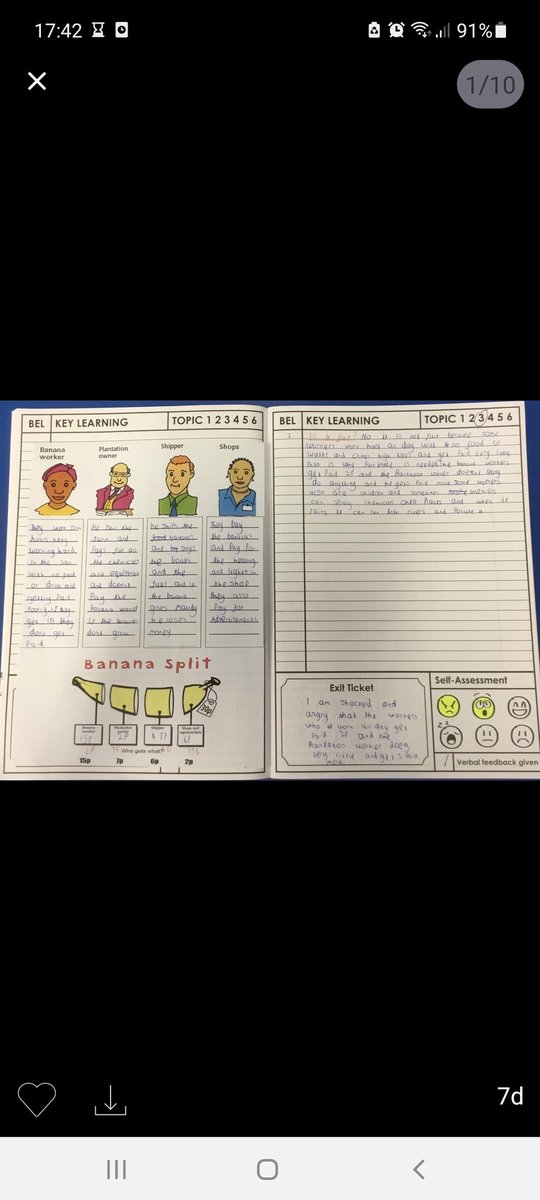 17:42
91%
1/10
BEL KEY LEARNING TOPIC 1 2 3 4 5 6
Banana worker
Plantation owner
Shipper
Shops
They work
working hard
in the sun
with no food
or drink and
getting Paid
Poorly if they
get ill they
dont get
Paid
He
farm and
Pays for all
the chemicals
and
and doesnt
Pay the
banana worker
if the bananas
dont grow
He ships the
bananas
and buys
the boats
and the
fuel and if
the banana
goes
he loses
money
They buy
the bananas
and Pay for
the heating
and lights in
the shop
they also
Pay for
Advertisements
Banana Split
30p
Banana worker
Plantation owner
Shipper
Shops and supermarkets
15p
6p
2p
15p
Who gets what?
15p 7p 6p 2p
BEL KEY LEARNING TOPIC 1 2 3 4 5 6
Is it fair? No it is not fair because some
workers work hard all day with no food or
water and get Paid very little
that is why fairtrade is needed the banana workers
get Paid 2P and the Plantation owner doesnt
do anything and he gets Paid more some workers
also are children and sometimes workers
can spray chemicals onto and when it
rains it can into rivers and Pollute it.
Exit Ticket
I am shocked and
angry that the workers
who work all day get
Paid 2P and the
Plantation worker does
very little and gets Paid
more.
Self-Assessment
Verbal feedback given
7d